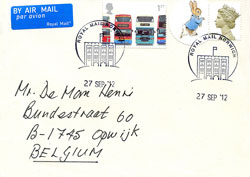 BY AIR MAIL
par avion
Royal Mail
1st
ROYAL MAIL NORWICH
ROYAL MAIL NORWICH
27 SEP '12
27 SEP '12
Mr. De Man Henri
Bundestraat 60
B-1745 Opwijk
BELGIUM